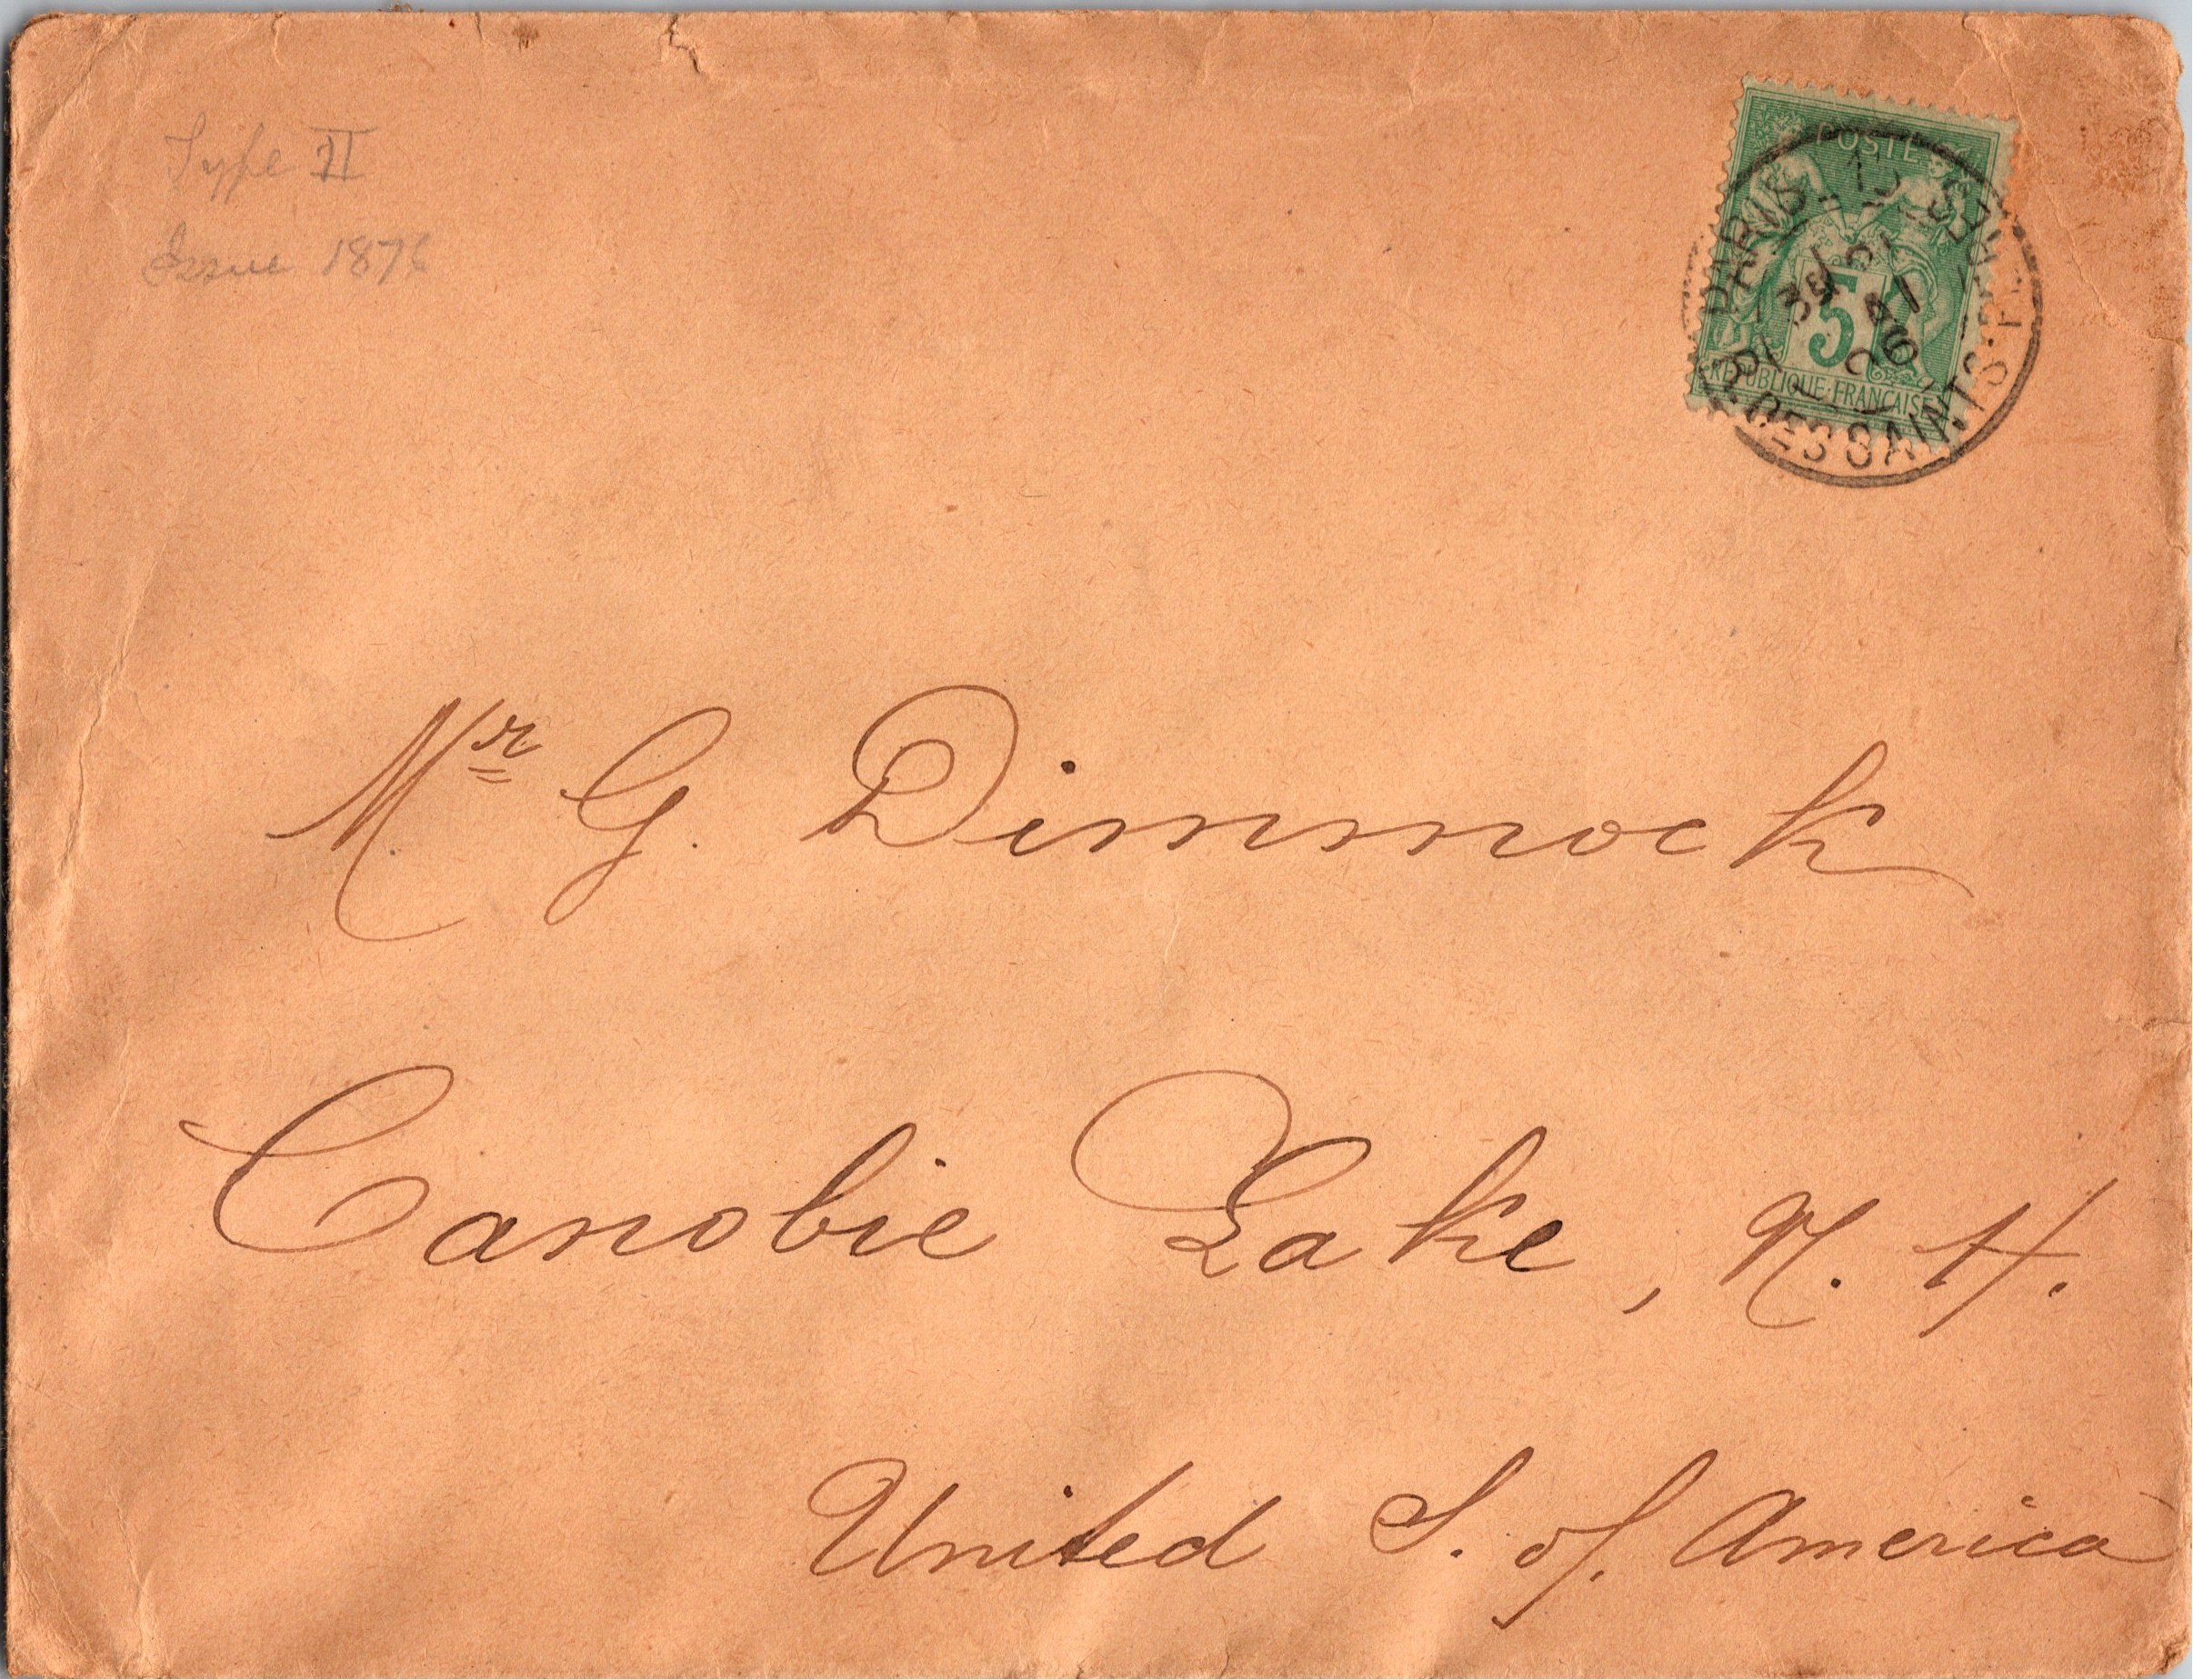 Type II
Issue 1876
POSTE
5
REPUBLIQUE·FRANÇAISE
PARIS
R. DES SAINTS-
Mr G. Dimmock
Canobie Lake, N. H.
United S. of. America